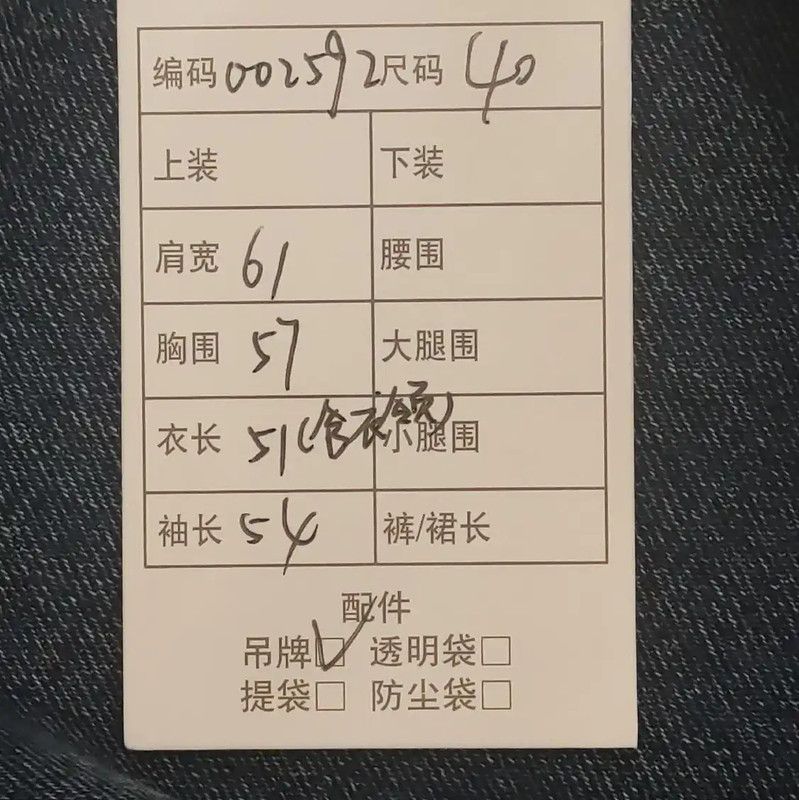 编码 002592 尺码 40
上装 下装
肩宽 61 腰围
胸围 57 大腿围
衣长 51(含衣领) 小腿围
袖长 54 裤/裙长
配件
吊牌☑ 透明袋□
提袋□ 防尘袋□